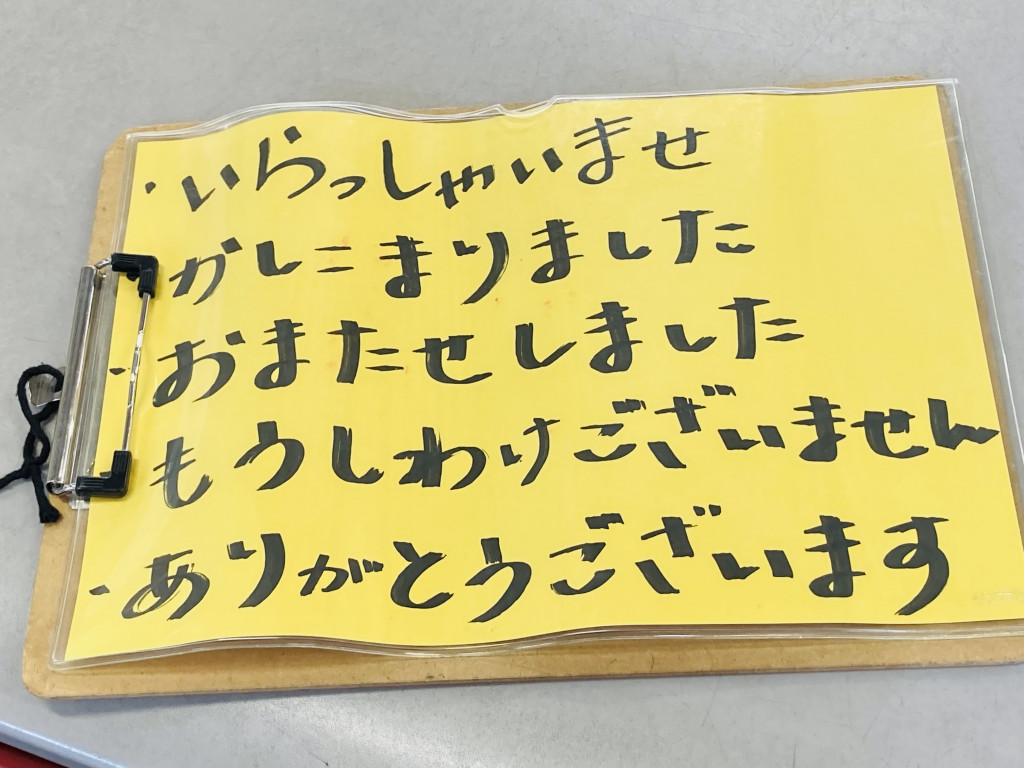 ・いらっしゃいませ
かしこまりました
・おまたせしました
もうしわけございません
・ありがとうございます